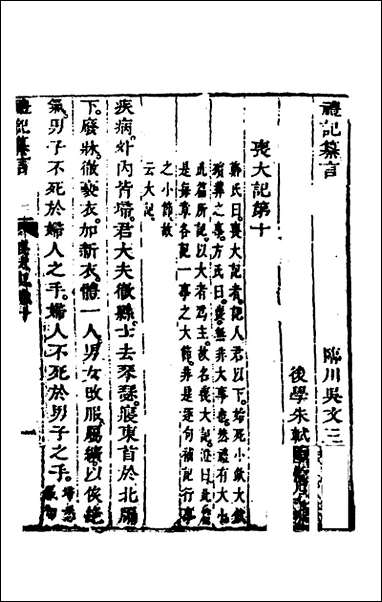 禮記纂言
臨川吳文
後學朱軾
喪大記第十
鄭氏曰喪大記者記人君以下始死小斂大斂
殯葬之事方氏曰喪無非大事也然處有大小
此篇所記以大者爲主故名喪大記澄曰此
是每章各記一事之大節非是逐句補記行事
之小節故
云大記
疾病外內皆埽君大夫徹縣士去琴瑟寢東首於北牖
下廢牀徹褻衣加新衣體一人男女改服屬纊以俟絕
氣男子不死於婦人之手婦人不死於男子之手
禮記纂言
一